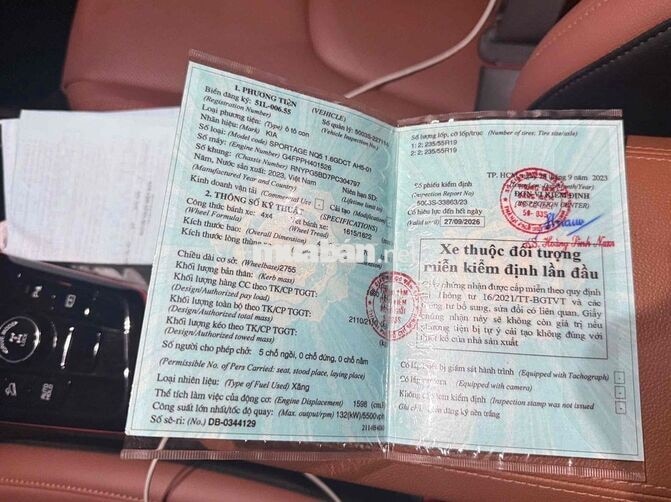 1. PHƯƠNG TIỆN (VEHICLE)
Biển đăng ký: 51L-006.55
(Registration Number)
Số quản lý: 5003S-
(Vehicle Inspection No.)
Loại phương tiện: (Type) ô tô con
Nhãn hiệu: (Mark) KIA
Số loại: (Model code) SPORTAGE NQ5 1.6GDCT AH5-01
Số máy: (Engine Number) G4FPPH401526
Số khung: (Chassis Number) RNYPG5BD7PC304797
Năm, Nước sản xuất: 2023, Việt Nam
Niên hạn SD:
(Manufactured Year and Country)
(Lifetime limit to)
Kinh doanh vận tải
(Commercial Use)
Cải tạo
(Modification)
2. THÔNG SỐ KỸ THUẬT
(SPECIFICATIONS)
Công thức bánh xe: 4x4
Vết bánh xe: 1615/1622
(Wheel Formula)
(Wheel Tread)
Kích thước bao: (Overall Dimension)
Kích thước lòng thùng
Chiều dài cơ sở: (Wheelbase) 2755
Khối lượng bản thân: (Kerb mass)
Khối lượng hàng CC theo TK/CP TGGT:
(Design/Authorized pay load)
Khối lượng toàn bộ theo TK/CP TGGT:
(Design/Authorized total mass)
Khối lượng kéo theo TK/CP TGGT:
(Design/Authorized towed mass)
Số người cho phép chở: 5 chỗ ngồi, 0 chỗ đứng, 0 chỗ nằm
(Permissible No. of Pers Carried: seat, stood place, laying place)
Loại nhiên liệu: (Type of Fuel Used) Xăng
Thể tích làm việc của động cơ: (Engine Displacement) 1598
Công suất lớn nhất/tốc độ quay: (Max. output/rpm) 132(kW)/5500vph
Số sê-ri: (No.) DB-0344129
Số lượng lốp, cỡ lốp/trục (Number of tires; Tire size/axle)
1: 2; 235/55R19
2: 2; 235/55R19
TP. HCM, 9 năm 2023
Số phiếu kiểm định
(Inspection Report No)
ĐƠN VỊ KIỂM ĐỊNH
(INSPECTION CENTER)
5003S-33863/23
Có hiệu lực đến hết ngày
(Valid until) 27/09/2026
50-03S
Hoàng Đình Nam
Xe thuộc đối tượng
miễn kiểm định lần đầu
chứng nhận được cấp miễn theo quy định
Thông tư 16/2021/TT-BGTVT và các
tư bổ sung, sửa đổi có liên quan. Giấy
chứng nhận này sẽ không còn giá trị nếu
tượng tiện bị tự ý cải tạo không đúng với
kế của nhà sản xuất
Có lắp thiết bị giám sát hành trình (Equipped with Tachograph)
Có lắp camera (Equipped with camera)
Không cấp tem kiểm định (Inspection stamp was not issued)
Ghi chú: biển đăng ký nền trắng